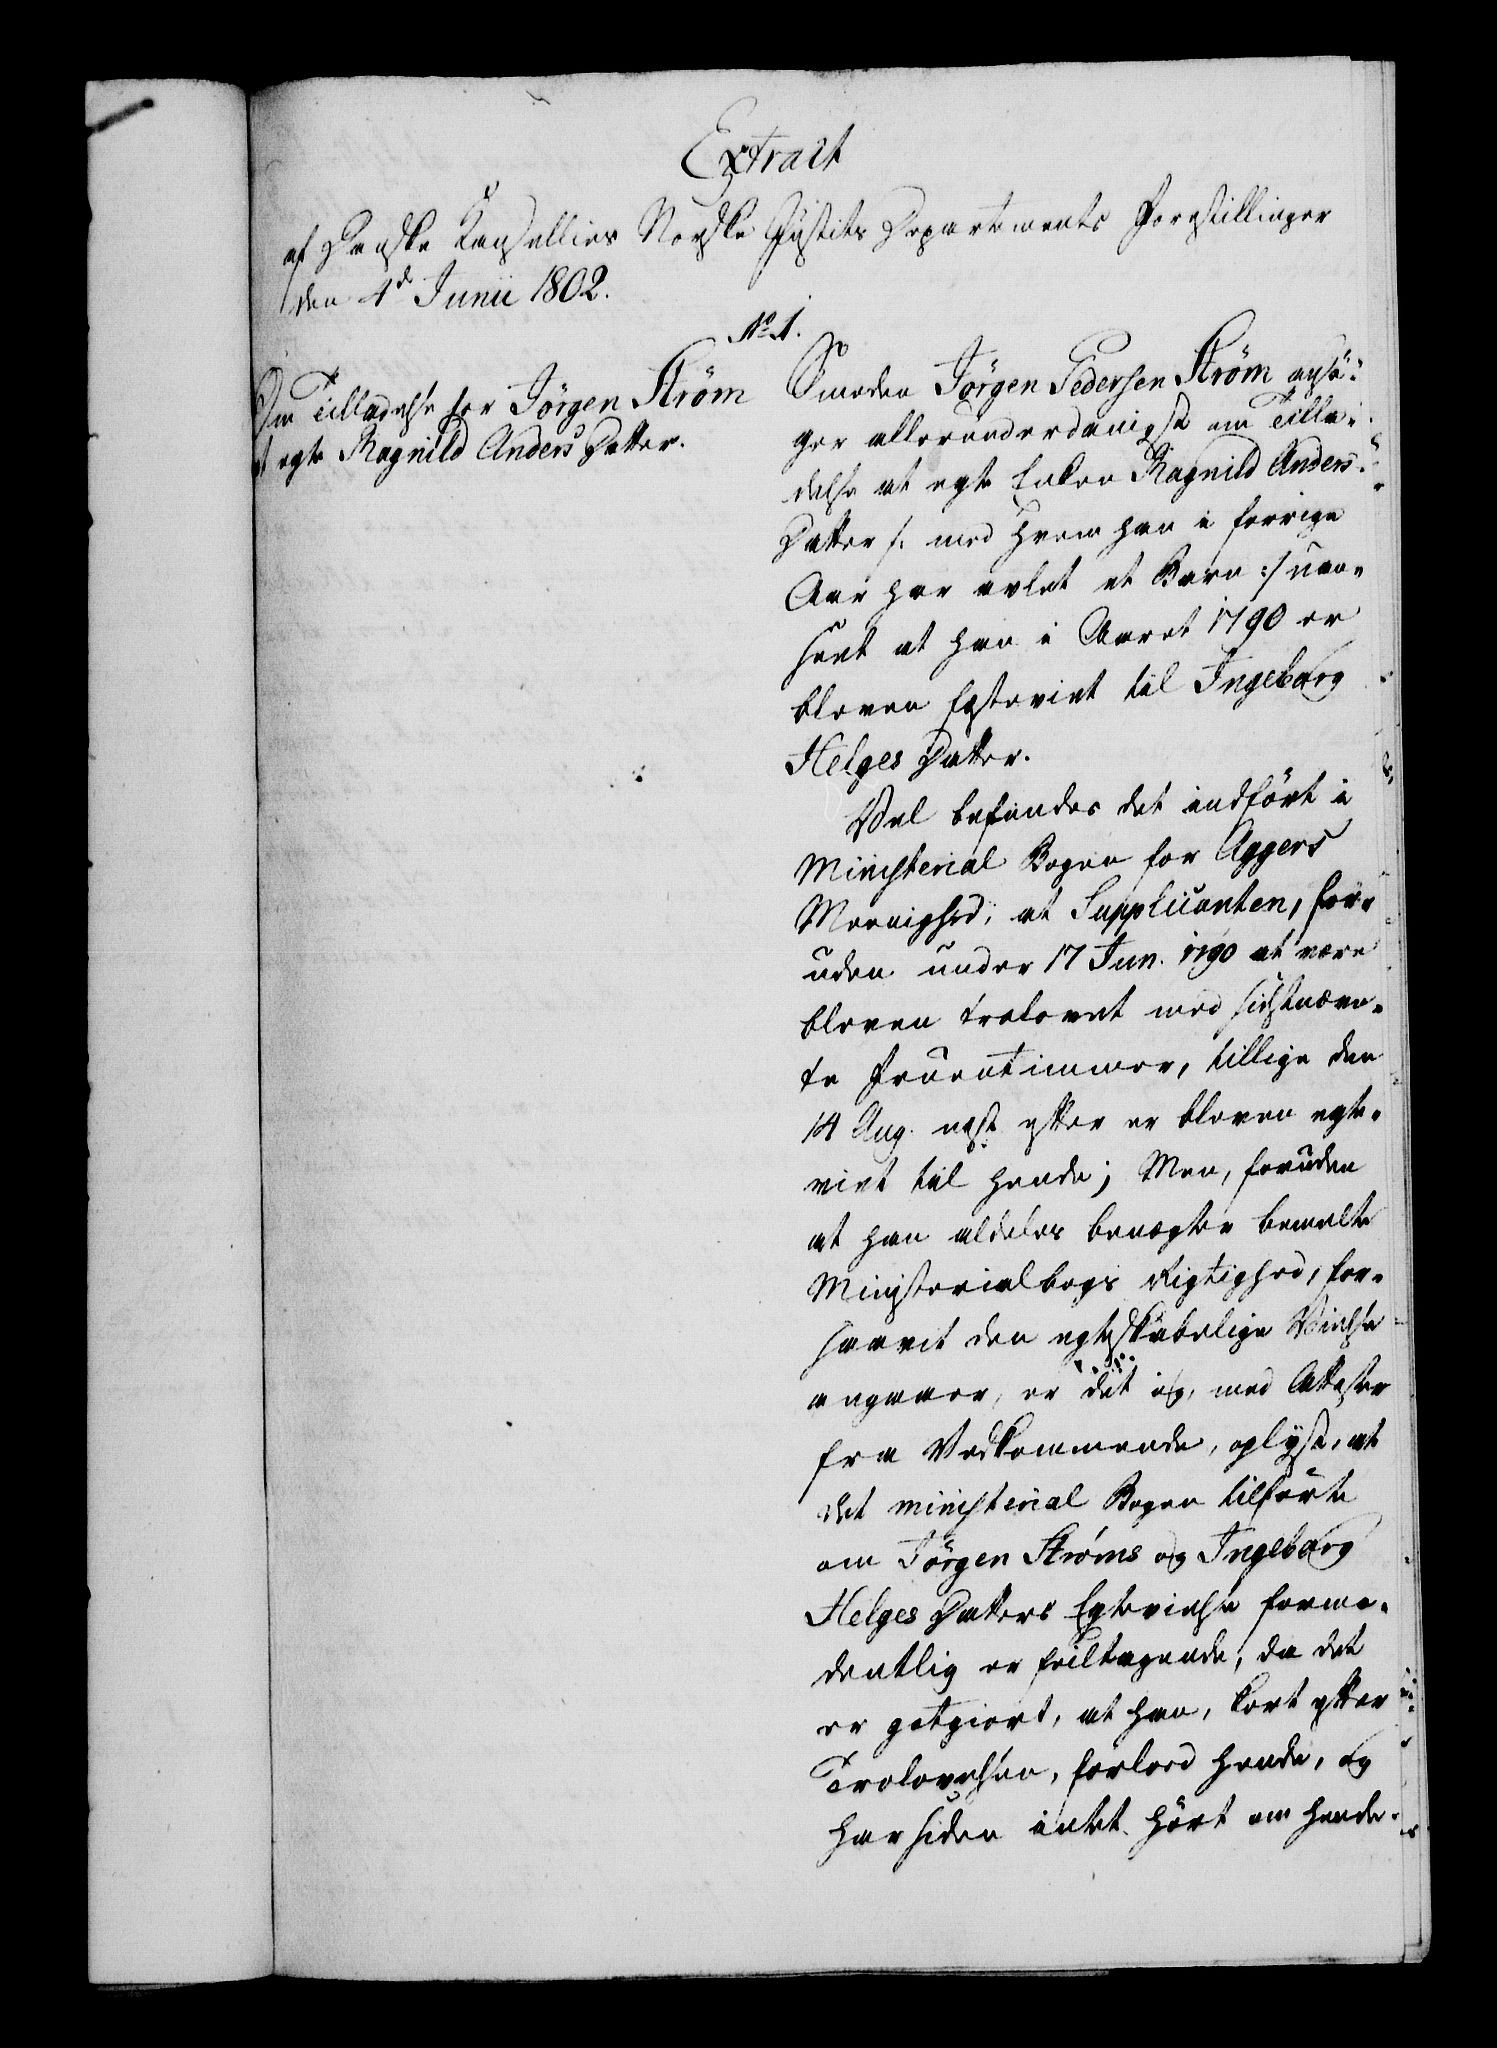 Extract
af Danske Kancellies Norske Justits Departements Forestillinger
den 4d Junii 1802.
No 1.
Om Tilladelse for Jörgen Ström
at egte Ragnild Anders Datter.
Smeden Jörgen Pedersen Ström ansö-
ger allerunderdanigst om Tilla-
delse at egte Enken Ragnild Anders-
Datter /: med hvem han i forrige
Aar har avlet et Barn :/ uan-
seet at han i Aaret 1790 er
bleven Egteviet til Ingeborg
Helges Datter.
Vel befindes det indfört i
Ministerial Bogen for Aggers
Menighed, at Supplicanten, for-
uden under 17 Jun. 1790 at være
bleven trolovet med sidstnævn-
te Fruentimmer, tillige den
14 Aug. nest efter er bleven egte-
viet til hende; Men, foruden
at han aldeles benegter bemelte
Ministerialbogs Rigtighed, for-
saavit den egteskabelige Vielse
angaaer, er det og, med Attester
fra Vedkommende, oplyst, at
det ministerial Bogen tilförte
om Jörgen Ströms og Ingeborg
Helges Datters Egtevielse forme-
dentlig er feiltagende, da det
er gotgiort, at han, kort efter
Trolovelsen, forlod hende, og
har siden intet hört om hende.